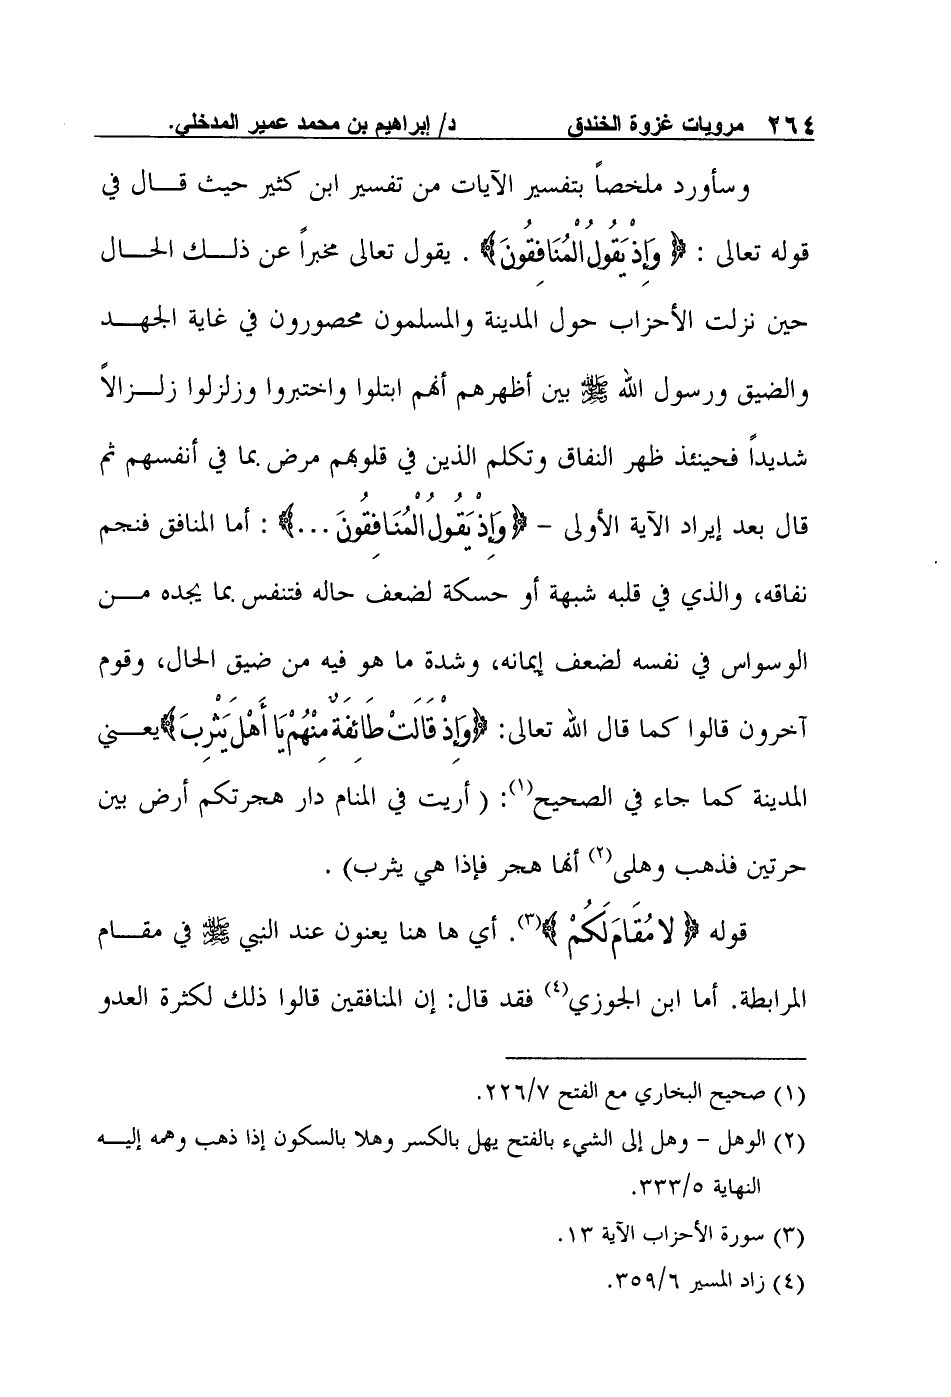 ٢٦٤ مرويات غزوة الخندق د/ إبراهيم بن محمد عمير المدخلي.
وسأورد ملخصاً بتفسير الآيات من تفسير ابن كثير حيث قـــال في
قوله تعالى : ﴿ وَإِذْ يَقُولُ الْمُنَافِقُونَ﴾ . يقول تعالى مخبراً عن ذلـــك الحـــال
حين نزلت الأحزاب حول المدينة والمسلمون محصورون في غاية الجهـــد
والضيق ورسول الله ﷺ بين أظهرهم أنهم ابتلوا واختبروا وزلزلوا زلـــزالاً
شديداً فحينئذ ظهر النفاق وتكلم الذين في قلوبهم مرض بما في أنفسهم ثم
قال بعد إيراد الآية الأولى – ﴿ وَإِذْ يَقُولُ الْمُنَافِقُونَ ...﴾ : أما المنافق فنجم
نفاقه، والذي في قلبه شبهة أو حسكة لضعف حاله فتنفس بما يجده مـــن
الوسواس في نفسه لضعف إيمانه، وشدة ما هو فيه من ضيق الحال، وقوم
آخرون قالوا كما قال الله تعالى: ﴿وَإِذْ قَالَتْ طَائِفَةٌ مِنْهُمْ يَا أَهْلَ يَثْرِبَ﴾يعـــني
المدينة كما جاء في الصحيح(١): ( أريت في المنام دار هجرتكم أرض بين
حرتين فذهب وهلى(٢) أنها هجر فإذا هي يثرب) .
قوله ﴿ لا مُقَامَ لَكُمْ ﴾(٣). أي ها هنا يعنون عند النبي ﷺ في مقـــام
المرابطة. أما ابن الجوزي(٤) فقد قال: إن المنافقين قالوا ذلك لكثرة العدو
(١) صحيح البخاري مع الفتح ٢٢٦/٧.
(٢) الوهل – وهل إلى الشيء بالفتح يهل بالكسر وهلا بالسكون إذا ذهب وهمه إليـــه
النهاية ٣٣٣/٥.
(٣) سورة الأحزاب الآية ١٣.
(٤) زاد المسير ٣٥٩/٦.